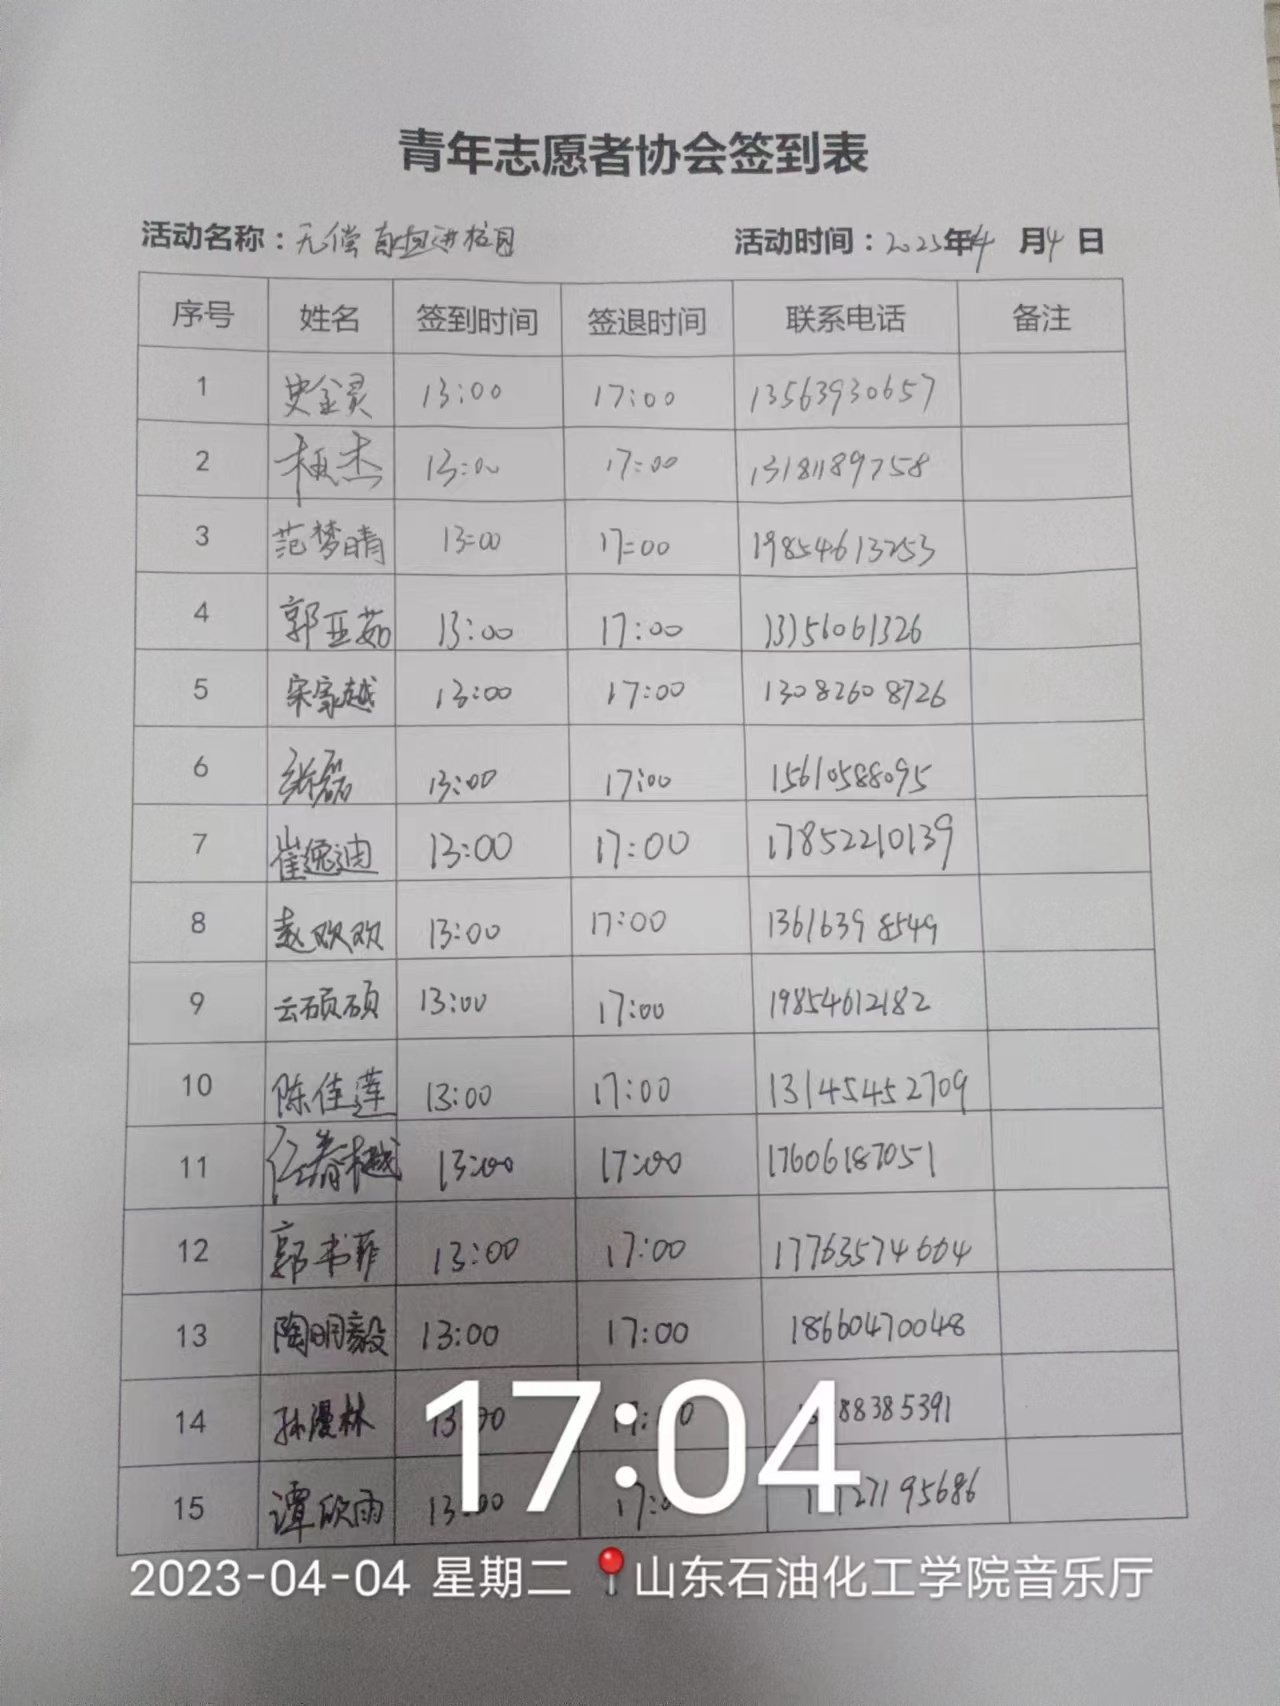 青年志愿者协会签到表
活动名称：无偿献血进校园 活动时间：2023年4月4日
序号 姓名 签到时间 签退时间 联系电话 备注
1 史金灵 13:00 17:00 13563930657
2 杰 13:00 17:00 13181189758
3 范梦晴 13:00 17:00 19854613253
4 郭亚茹 13:00 17:00 13156061326
5 宋家越 13:00 17:00 13082608726
6 张磊 13:00 17:00 15610588095
7 崔逸迪 13:00 17:00 17852210139
8 赵欢欢 13:00 17:00 13616398549
9 云硕硕 13:00 17:00 19854612182
10 陈佳莲 13:00 17:00 13145452709
11 任春樾 13:00 17:00 17606187051
12 郭书菲 13:00 17:00 17763574664
13 陶明毅 13:00 17:00 18660470048
14 孙漫林
15 谭欣雨
17:04
2023-04-04 星期二 山东石油化工学院音乐厅